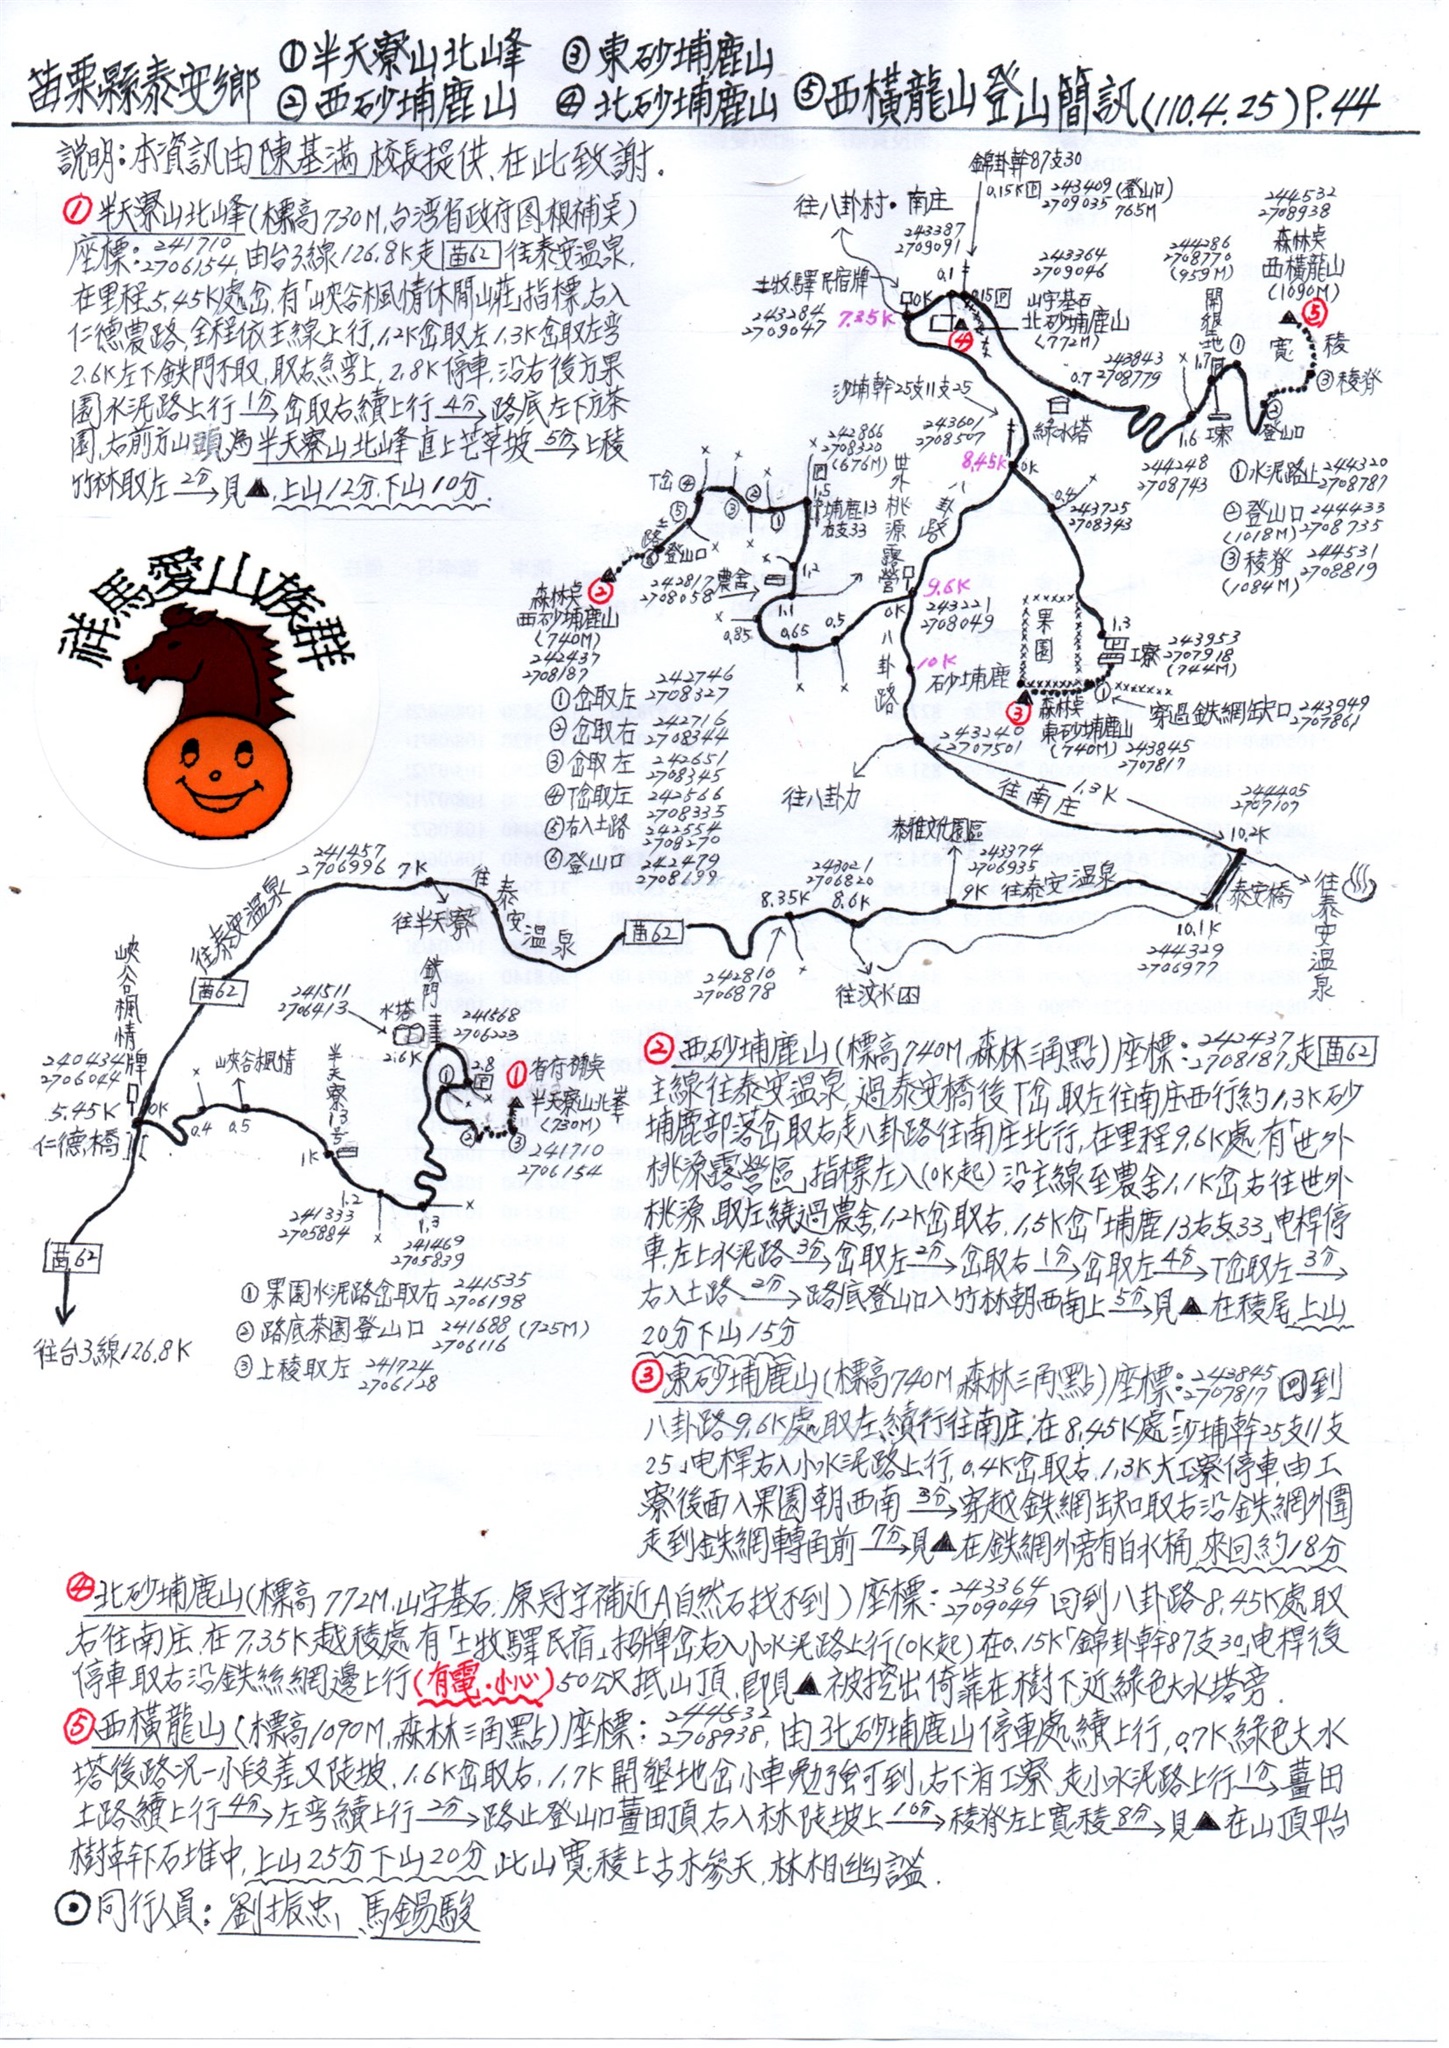 苗栗縣泰安鄉 ①半天寮山北峰 ③東砂埔鹿山
②西砂埔鹿山 ④北砂埔鹿山 ⑤西橫龍山登山簡訊(110.4.25)P.44
說明:本資訊由陳基滿校長提供、在此致謝.
①半天寮山北峰(標高730M,台湾省政府图根補桌)
座標:241710 2706154,由台3線126.8K走苗62往泰安温泉,
在里程5.45K處岔,有「峽谷楓情休閒山莊」指標,右入
仁德農路,全程依主線上行,1.2K岔取左1.3K岔取左彎
2.6K左下鉄門不取,取右急彎上,2.8K停車,沿右後方果
園水泥路上行1分→岔取右續上行4分→路底左下方茶
園,右前方山頭為半天寮山北峰直上芒草坡5分→上稜
竹林取左2分→見▲,上山12分.下山10分.
祥馬愛山族群
往八卦村·南庄
錦卦幹87支30
0.15K回 243409 2709035 (登山口) 765M
243387
2709091
土牧驛民宿牌
243284
2709047
7.35K
0K
0.1
0.15回
243364
2709046
山字基石
北砂埔鹿山
(772M)
④
244286
2708770
(959M)
開墾地
244532
2708938
森林桌
西橫龍山
(1090M)
⑤
寬稜
③稜脊
②登山口
1.7回
1.6工寮
243843
2708779
0.7
綠水塔
①水泥路止 244320 2708787
②登山口 244433 (1018M) 2708735
③稜脊 244531 (1084M) 2708819
244248
2708743
沙埔幹25支11支25
243601
2708507
8.45K
0K
0.4
243725
2708343
八卦路
世外桃源露營
9.6K
0K
243221
2708049
10K
砂埔鹿
八卦路
果園
1.3
工寮
243953
2707918
(744M)
穿過鉄網缺口 243949 2707861
③森林桌
東砂埔鹿山
(740M) 243845 2707817
243240
2707501
往八卦力
往南庄
1.3K
244405
2707107
10.2K
泰安橋
往泰安温泉
10.1K
244329
2706977
242866
2708320
(676M)
回
1.5
埔鹿13
右支33
T岔④
⑤
③
②
①
土路
⑥登山口
242817
2708058
農舍
1.2
1.1
0.85
0.65
0.5
②
森林桌
西砂埔鹿山
(740M)
242437
2708187
①岔取左 242746 2708327
②岔取右 242716 2708344
③岔取左 242651 2708345
④T岔取左 242566 2708335
⑤右入土路 242554 2708270
⑥登山口 242479 2708199
241457
2706996
7K
往半天寮
往泰安温泉
往泰安温泉
苗62
苗62
8.35K
242816
2706878
243021
2706820
8.6K
往汶水回
泰雅文化園區
243374
2706935
9K
往泰安温泉
峽谷楓情牌
240434
2706044
5.45K
0K
仁德橋
0.4
0.5
峽谷楓情
241511
2706413
水塔
2.6K
鉄門
241568
2706223
2.8回
①
②
③
①省府補桌
半天寮山北峯
(730M)
241710
2706154
半天寮13号
1K
1.2
241333
2705884
1.3
241469
2705839
苗62
往台3線126.8K
①果園水泥路岔取右 241535 2706198
②路底茶園登山口 241688 2706116 (725M)
③上稜取左 241724 2706128
②西砂埔鹿山(標高740M,森林三角點)座標:242437 2708187,走苗62
主線往泰安温泉,過泰安橋後T岔取左往南庄西行約1.3K砂
埔鹿部落岔取右走八卦路往南庄北行,在里程9.6K處,有「世外
桃源露營區」指標左入(0K起)沿主線至農舍1.1K岔右往世外
桃源,取左繞過農舍,1.2K岔取右,1.5K岔「埔鹿13右支33」电桿停
車,左上水泥路3分→岔取左2分→岔取右1分→岔取左4分→T岔取左3分→
右入土路2分→路底登山口入竹林朝西南上5分→見▲在稜尾,上山
20分下山15分
③東砂埔鹿山(標高740M,森林三角點)座標:243845 2707817回到
八卦路9.6K處取左,續行往南庄,在8.45K處「沙埔幹25支11支
25」电桿右入小水泥路上行,0.4K岔取右,1.3K大工寮停車,由工
寮後面入果園朝西南3分→穿越鉄網缺口取右沿鉄網外圍
走到鉄網轉角前7分→見▲在鉄網外旁有白水桶,來回約18分
④北砂埔鹿山(標高772M,山字基石,原冠字補近A自然石找不到)座標:243364 2709049回到八卦路8.45K處取
右往南庄,在7.35K越稜處有「土牧驛民宿」招牌岔右入小水泥路上行(0K起)在0.15K「錦卦幹87支30」电桿後
停車取右沿鉄絲網邊上行(有電·小心)50公尺抵山頂,即見▲被挖出倚靠在樹下,近綠色大水塔旁.
⑤西橫龍山(標高1090M,森林三角點)座標:244532 2708938,由北砂埔鹿山停車處續上行,0.7K綠色大水
塔後路況一小段差又陡坡,1.6K岔取右,1.7K開墾地岔小車勉強可到,右下有工寮,走小水泥路上行1分→薑田
土路續上行4分→左彎續上行2分→路止登山口薑田頂,右入林陡坡上10分→稜脊左上寬稜8分→見▲在山頂平台
樹幹下石堆中,上山25分下山20分,此山寬稜上古木參天,林相幽謐.
⊙同行人員:劉振忠、馬錫駿